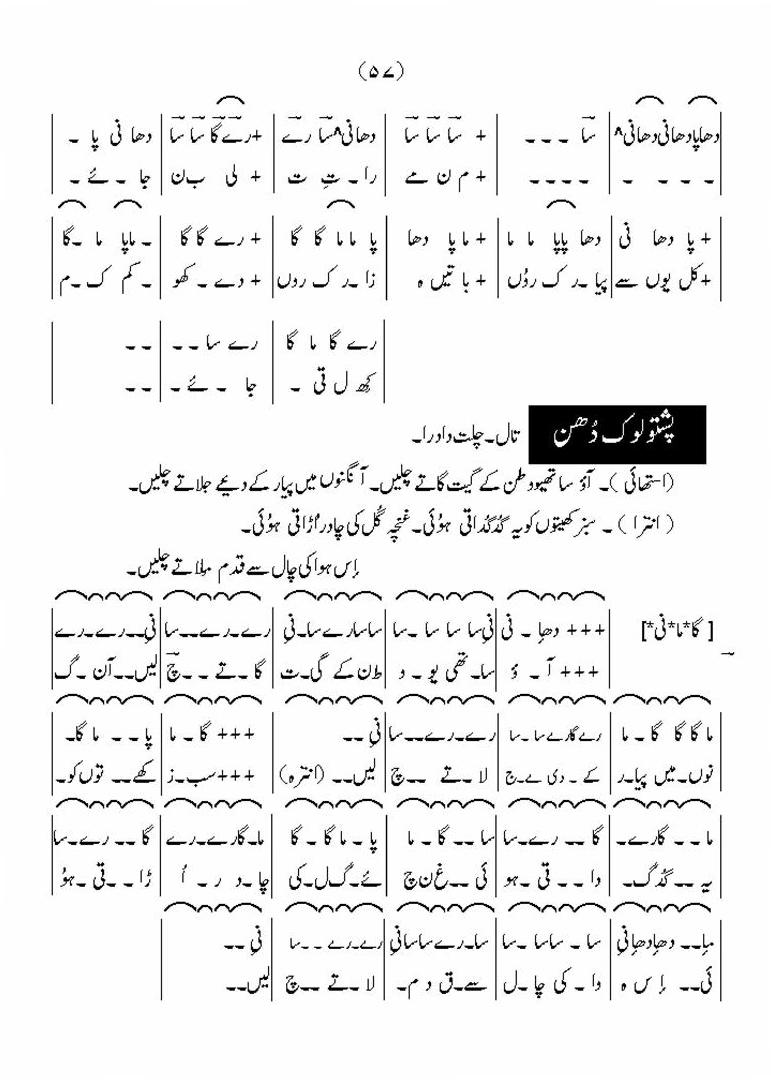 (۵۷)
دھاپادھانی دھانی^ | سا - - - | + سا سا سا | دھانی^سا رے | +رے گا سا سا | دھا نی پا -
- - - - | - - - - | + م ن مے | را - تِ ت | + لی بن | جا - ئے -
+ پا دھا نی | دھا پاپا ما ما | + ما پا دھا | پا ما ما گا گا | + رے گا گا | - ماپا ما -گا
+کل یوں سے | پیا -ر ک رؤں | + باتیں ہ | زا -رک روں | + دے - کھو | - کم ک -م
رے گا ما گا | رے سا - - | - -
کِھ ل تی - | جا - ئے - | - -
پشتو لوک دُھن تال۔چلت دادرا۔
(استھائی)۔ آؤ ساتھیو وطن کے گیت گاتے چلیں۔ آنگنوں میں پیار کے دیئے جلاتے چلیں۔
(انترا)۔ سبز کھیتوں کو یہ گُدگُداتی ہوئی۔غنچہ گُل کی چادر اُڑاتی ہوئی۔
اِس ہوا کی چال سے قدم ملاتے چلیں۔
[گا*ما*نی*] +++ دھا - نی | نی سا سا سا -سا | ساسارے سا-نی | رے-رے--سا | نی--رے-رے
+++ آ - ؤ | سا-تھی یو - و | طن کے گی-ت | گا-تے --چ | لیں--آن-گ
ما گا گا گا - ما | رے گارے سا -سا | رے-رے--سا | نی -- | +++ گا - ما | پا - - ما گا-
نوں-میں پیا-ر | کے - دی ے-ج | لا-تے --چ | لیں-- (انترہ) | +++سب-ز | کھے-- توں کو-
ما - - گارے- | گا -- رے-سا | سا--گا - ما | پا - ما گا - گا | ما-گارے-رے | گا -- رے-سا
یہ -- گُدگ- | دا -- تی -ہو | ئی --غ ن چ | ئے-گ ل-کی | چا-د ر - اُ | ڑا --تی -ہوُ
ما-- دھادھانی | سا - ساسا -سا | سا-رے ساسانی | رے-رے --سا | نی --
ئی-- اِس ہ | وا - کی چا-ل | سے-ق د م- | لا -تے --چ | لیں--